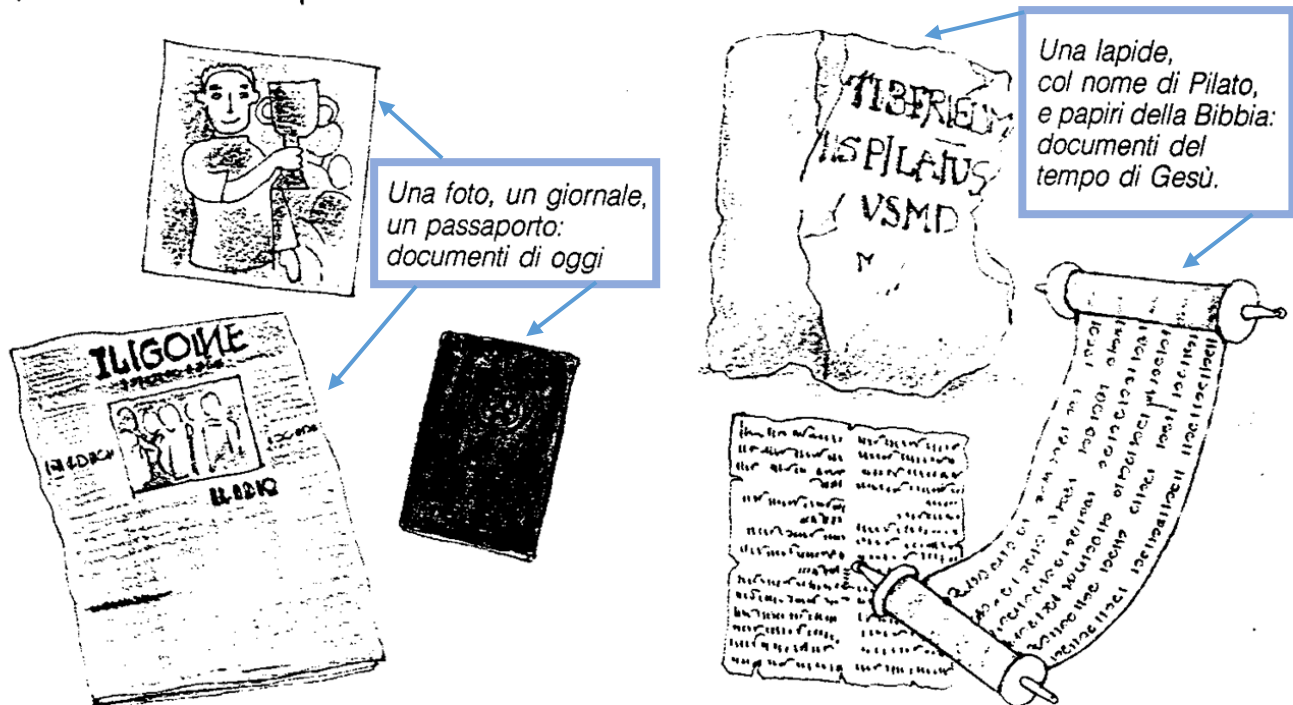 Una foto, un giornale,
un passaporto:
documenti di oggi
ILIGOINE
Una lapide,
col nome di Pilato,
e papiri della Bibbia:
documenti del
tempo di Gesù.
TIBERIEUM
USPILATUS
VSMD